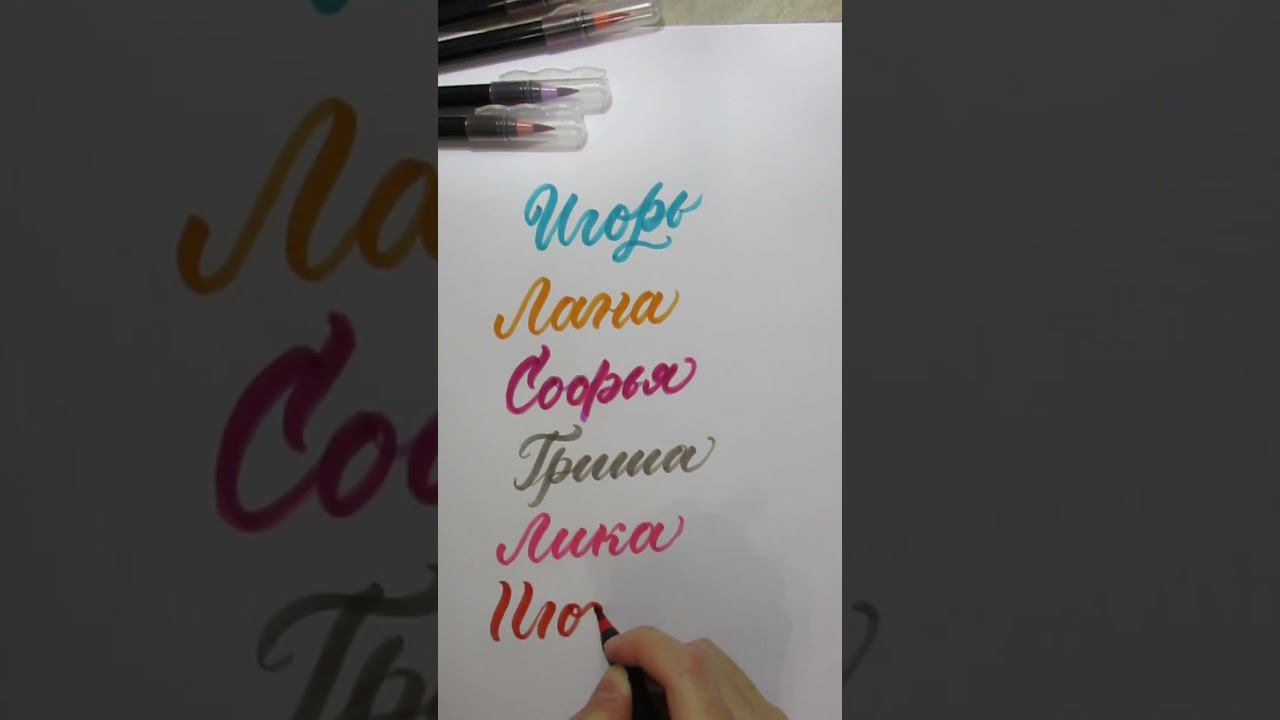 Игорь
Лана
Софья
Гриша
Лика